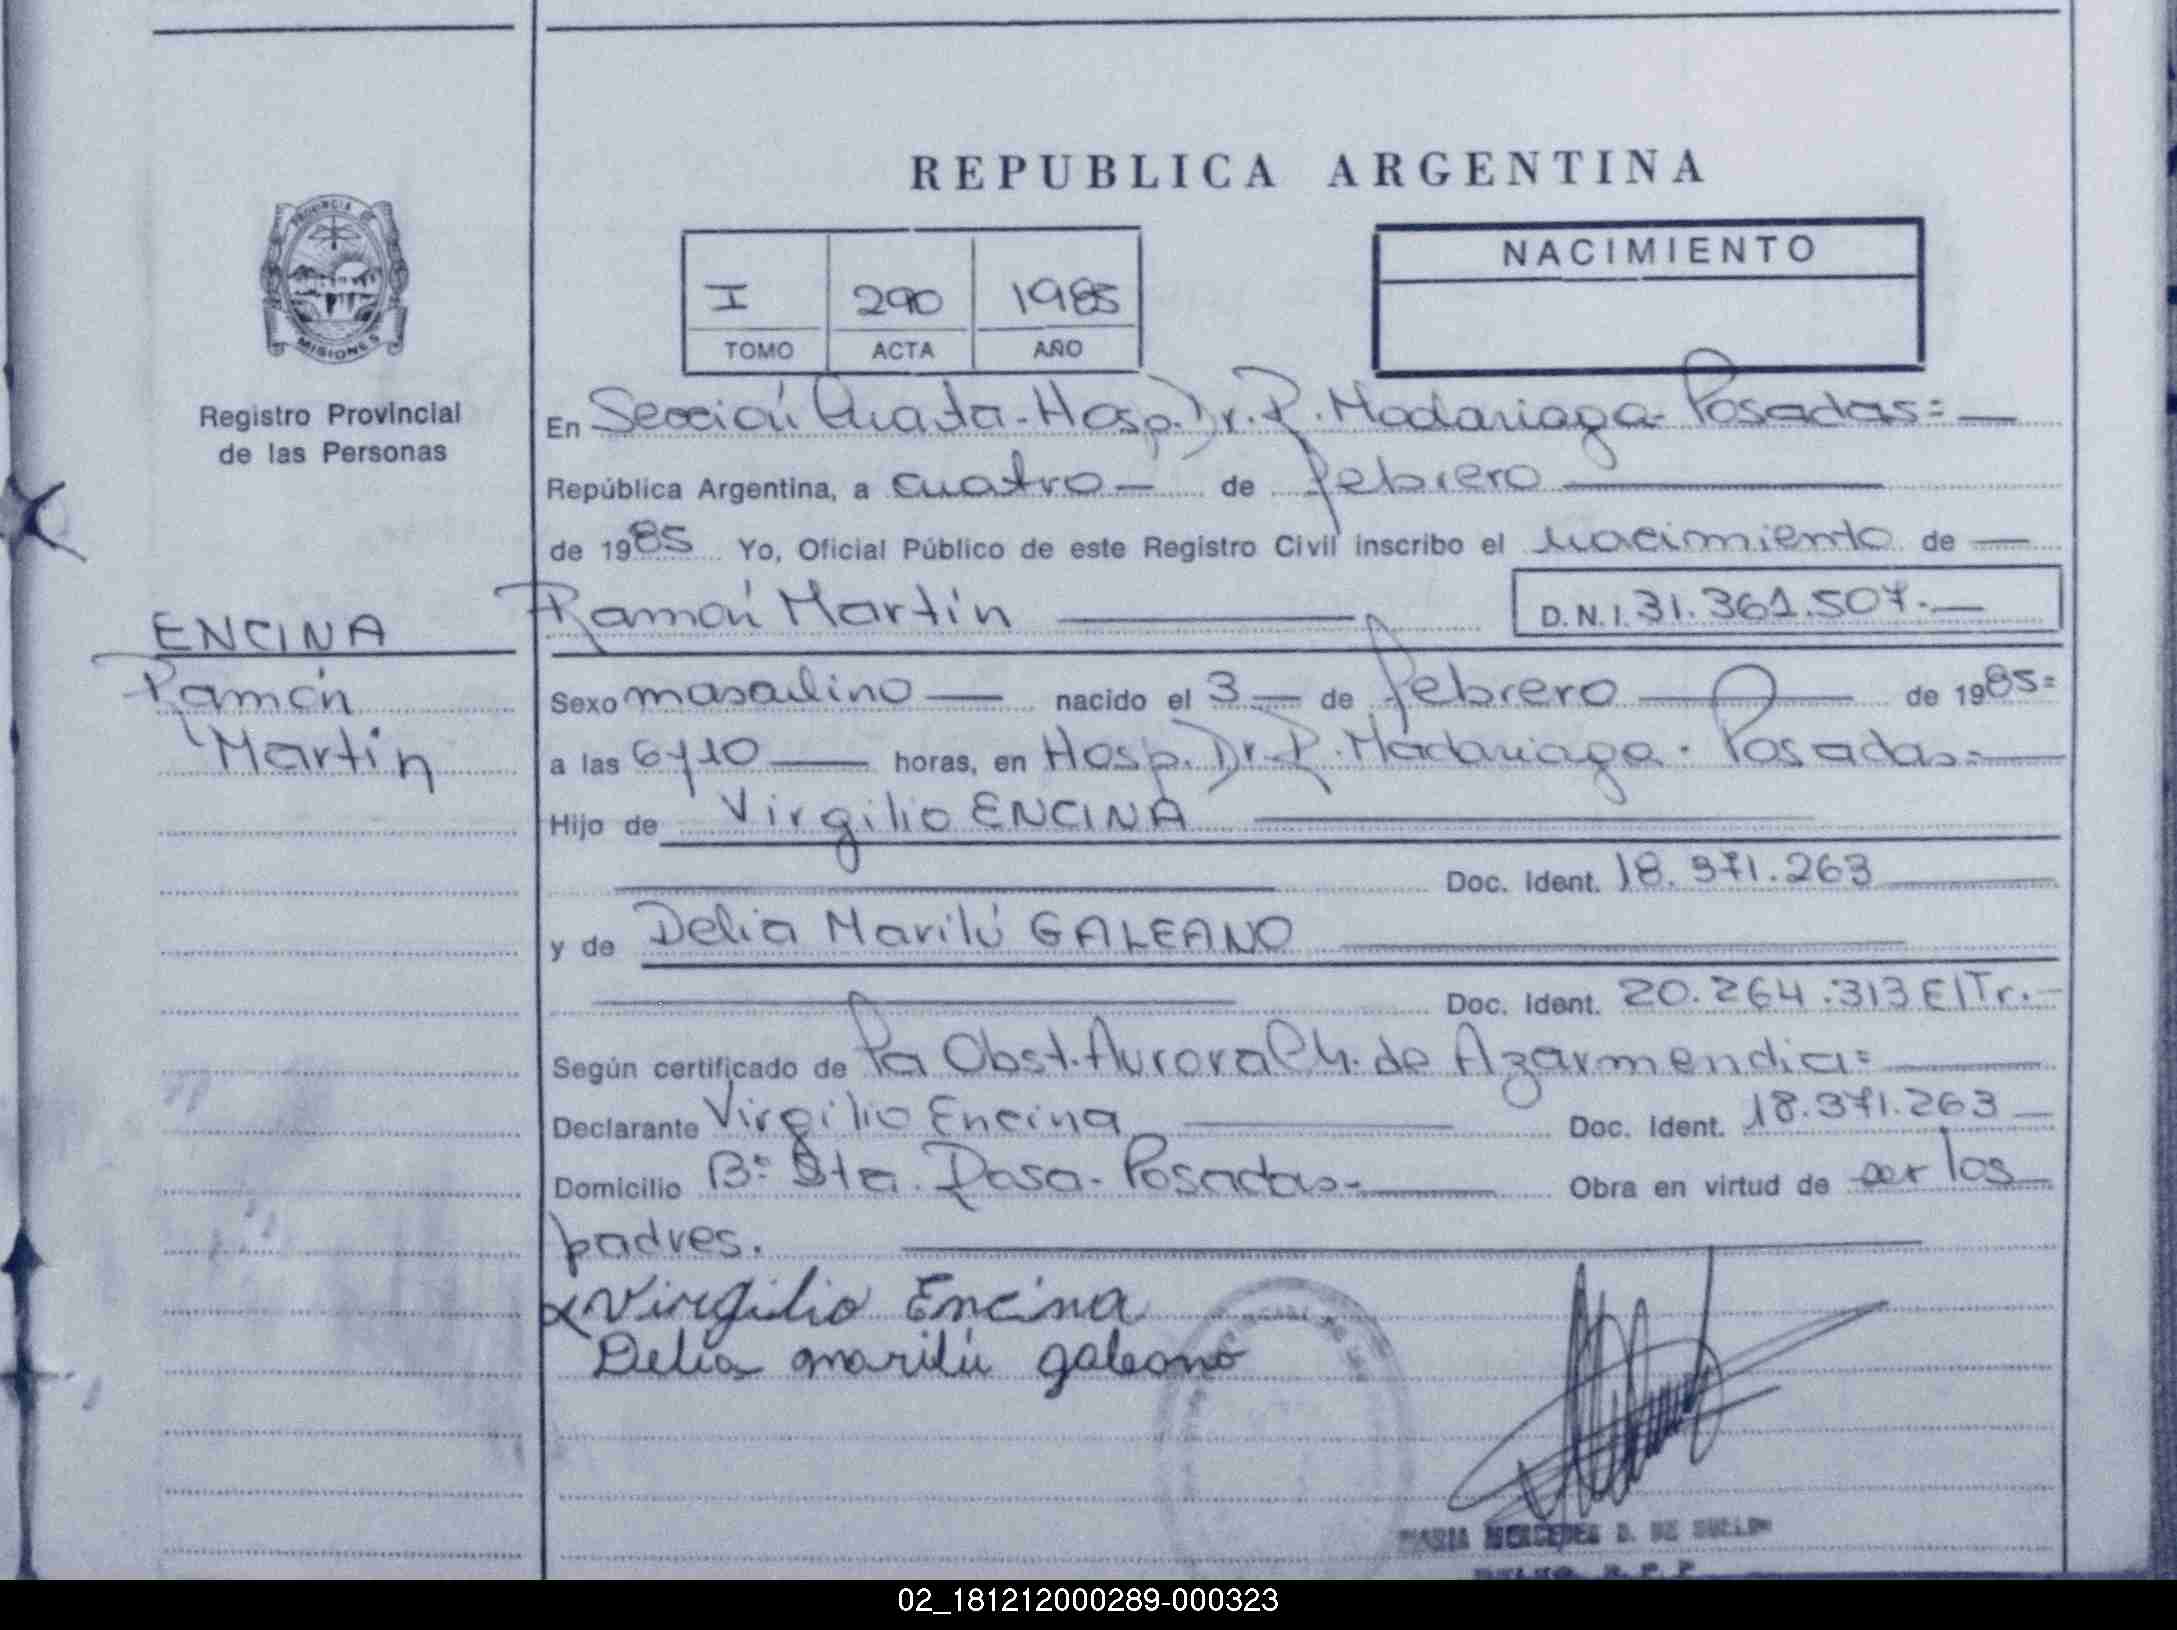 REPUBLICA ARGENTINA
PROVINCIA DE
MISIONES
Registro Provincial
de las Personas
I 290 1985
TOMO ACTA AÑO
NACIMIENTO
En Sección Cuarta - Hosp. Dr. R. Madariaga - Posadas =
República Argentina, a cuatro de febrero
de 1985 Yo, Oficial Público de este Registro Civil inscribo el nacimiento de
Ramón Martín D.N.I. 31.361.507.-
ENCINA
Ramón
Martín
Sexo masculino nacido el 3 de febrero de 1985=
a las 6y10 horas, en Hosp. Dr. R. Madariaga - Posadas=
Hijo de Virgilio ENCINA
Doc. Ident. 18.371.263
y de Delia Marilú GALEANO
Doc. Ident. 20.264.313 E/Tr.-
Según certificado de Pa Obst. Aurora Ch. de Azarmendia=
Declarante Virgilio Encina Doc. Ident. 18.371.263
Domicilio Bº Sta. Rosa - Posadas Obra en virtud de ser los
padres.
x Virgilio Encina
Delia marilú galeano
MARIA MERCEDES D. DE
02_181212000289-000323